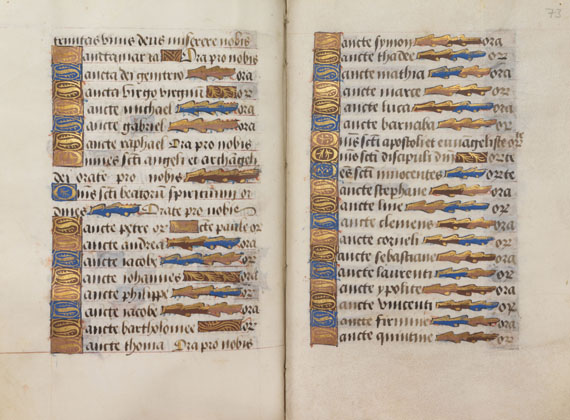 trinitas unus deus miserere nobis
Sancta maria Ora pro nobis
Sancta dei genitrix ora
Sancta virgo virginu or
Sancte michael ora
Sancte gabriel ora
Sancte raphael Ora pro nobis
Omnes scti angeli et archangeli
dei orate pro nobis
Omnes scti beatorum spirituum or
dines Orate pro nobis
Sancte petre or Scte paule or
Sancte andrea ora
Sancte iacobe or
Sancte iohannes ora
Sancte philippe or
Sancte iacobe ora
Sancte bartholomee or
Sancte thoma Ora pro nobis
73
Sancte symon ora
Sancte thadee or
Sancte mathia ora
Sancte marce or
Sancte luca or
Sancte barnaba or
Ois scti apostoli et euvagelistę orte
Ois scti discipuli dni orte
Oes scti innocentes orte
Sancte stephane ora
Sancte line or
Sancte clemens ora
Sancte corneli or
Sancte sebastiane ora
Sancte laurenti or
Sancte ypolite ora
Sancte vincenti or
Sancte firmine ora
Sancte quintine or